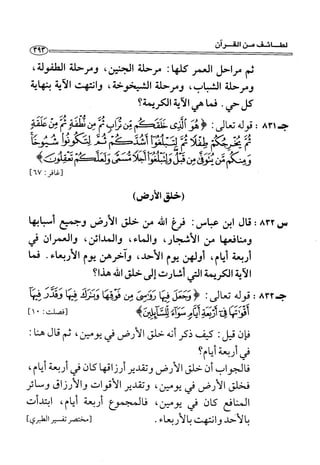 لطائف من القرآن
٣٩٣
ثم مراحل العمر كلها: مرحلة الجنين، ومرحلة الطفولة،
ومرحلة الشباب، ومرحلة الشيخوخة، وانتهت الآية بنهاية
كل حي. فما هي الآية الكريمة؟
جـ ٨٣١: قوله تعالى: ﴿هُوَ ٱلَّذِى خَلَقَكُم مِّن تُرَابٍ ثُمَّ مِن نُّطْفَةٍ ثُمَّ مِنْ عَلَقَةٍ
ثُمَّ يُخْرِجُكُمْ طِفْلًا ثُمَّ لِتَبْلُغُوٓا۟ أَشُدَّكُمْ ثُمَّ لِتَكُونُوا۟ شُيُوخًا
وَمِنكُم مَّن يُتَوَفَّىٰ مِن قَبْلُ وَلِتَبْلُغُوٓا۟ أَجَلًا مُّسَمًّى وَلَعَلَّكُمْ تَعْقِلُونَ﴾
[غافر: ٦٧]
(خلق الأرض)
س ٨٣٢: قال ابن عباس: فرغ الله من خلق الأرض وجميع أسبابها
ومنافعها من الأشجار، والماء، والمدائن، والعمران في
أربعة أيام، أولهن يوم الأحد، وآخرهن يوم الأربعاء. فما
الآية الكريمة التي أشارت إلى خلق الله هذا؟
جـ ٨٣٢: قوله تعالى: ﴿وَجَعَلَ فِيهَا رَوَٰسِىَ مِن فَوْقِهَا وَبَٰرَكَ فِيهَا وَقَدَّرَ فِيهَآ
أَقْوَٰتَهَا فِىٓ أَرْبَعَةِ أَيَّامٍ سَوَآءً لِّلسَّآئِلِينَ﴾ [فصلت: ١٠]
فإن قيل: كيف ذكر أنه خلق الأرض في يومين، ثم قال هنا:
في أربعة أيام؟
فالجواب أن خلق الأرض وتقدير أرزاقها كان في أربعة أيام،
فخلق الأرض في يومين، وتقدير الأقوات والأرزاق وسائر
المنافع كان في يومين، فالمجموع أربعة أيام، ابتدأت
بالأحد وانتهت بالأربعاء. [مختصر تفسير الطبري]